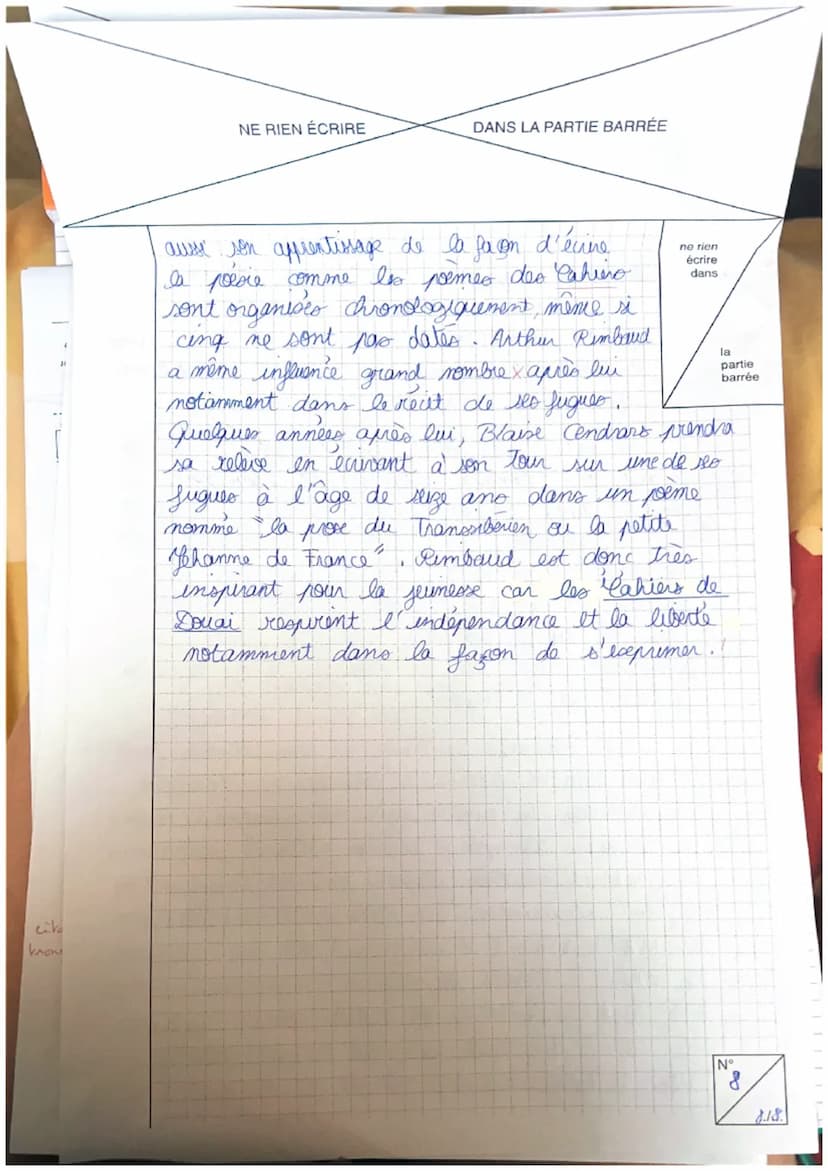 NE RIEN ÉCRIRE DANS LA PARTIE BARRÉE
ne rien
écrire
dans
la
partie
barrée
aussi son apprentissage de la façon d'écrire
la poésie comme les poèmes des Cahiers
sont organisés chronologiquement, même si
cinq ne sont pas datés. Arthur Rimbaud
a même influencé grand nombre x après lui
notamment dans le récit de ses fugues.
Quelques années après lui, Blaise Cendrars prendra
sa relève en écrivant à son tour sur une de ses
fugues à l'âge de seize ans dans un poème
nommé "la prose du Transsibérien ou la petite
Jehanne de France". Rimbaud est donc très
inspirant pour la jeunesse car les Cahiers de
Douai respirent l'indépendance et la liberté
notamment dans la façon de s'exprimer. !
N°
8
8/8.